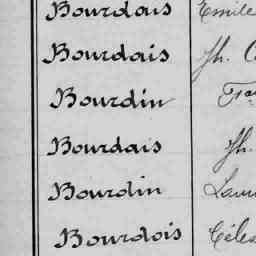 Bourdais Emile
Bourdais Jh.
Bourdin
Bourdais Jh.
Bourdin
Bourdois